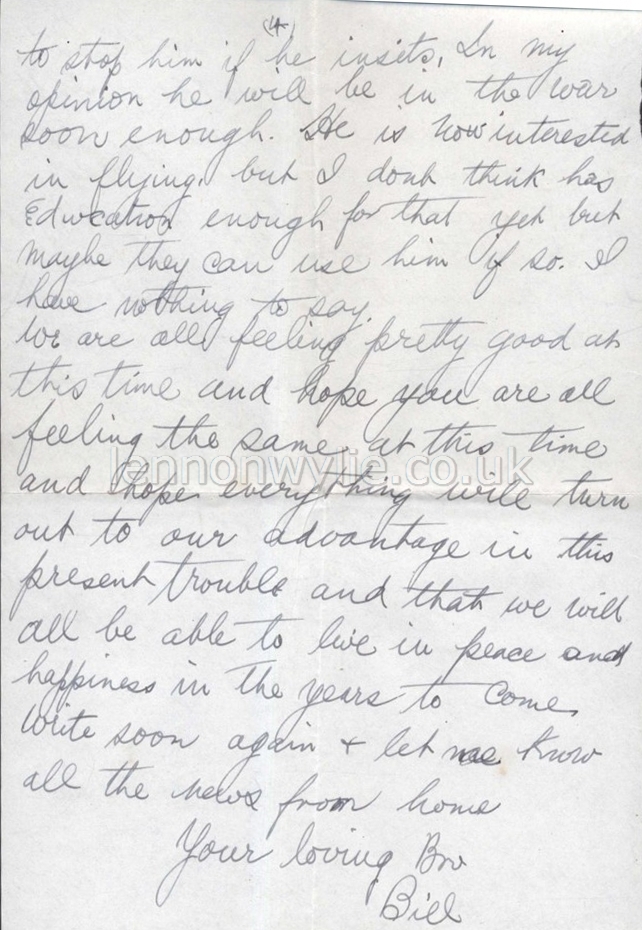 (4)
to stop him if he insits, In my
opinion he will be in the war
soon enough. He is now interested
in flying but I dont think has
Education enough for that yet but
maybe they can use him if so. I
have nothing to say.
We are all feeling pretty good at
this time and hope you are all
feeling the same at this time
lennonwylie.co.uk
and hope everything will turn
out to our advantage in this
present trouble and that we will
all be able to live in peace and
happiness in the years to come.
Write soon again + let me know
all the news from home
Your loving Bro
Bill